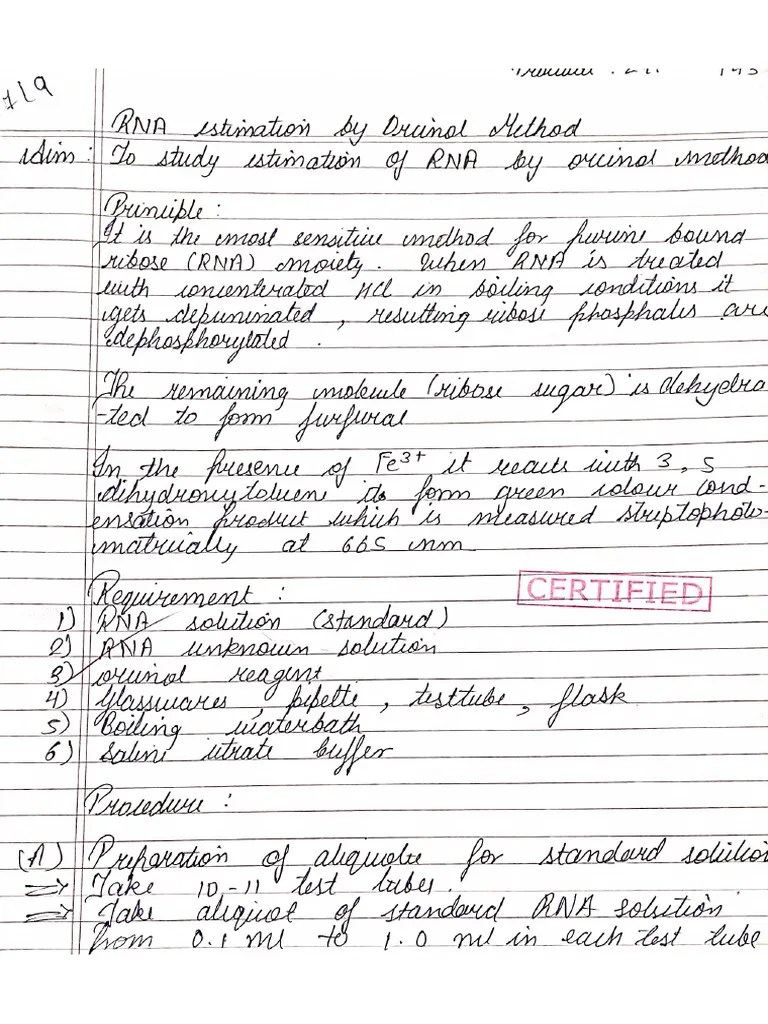 RNA estimation by Orcinol Method
Aim : To study estimation of RNA by orcinol method
Principle :
It is the most sensitive method for purine bound
ribose (RNA) moiety. When RNA is treated
with concenterated HCl in boiling conditions it
gets depurinated , resulting ribose phosphates are
dephosphorylated .
The remaining molecule (ribose sugar) is dehydra
-ted to form furfural
In the presence of Fe3+ it reacts with 3, 5
dihydroxytoluene to form green colour cond-
ensation product which is measured streptophoto-
matrically at 665 nm
CERTIFIED
Requirement :
1) RNA solution (standard)
2) RNA unknown solution
3) orcinol reagent
4) Glasswares , pipette , testtube , flask
5) Boiling waterbath
6) Saline citrate buffer
Procedure :
(A) Preparation of aliquote for standard solution
=> Take 10-11 test tubes .
=> Take aliquot of standard RNA solution
from 0.1 ml to 1.0 ml in each test tube